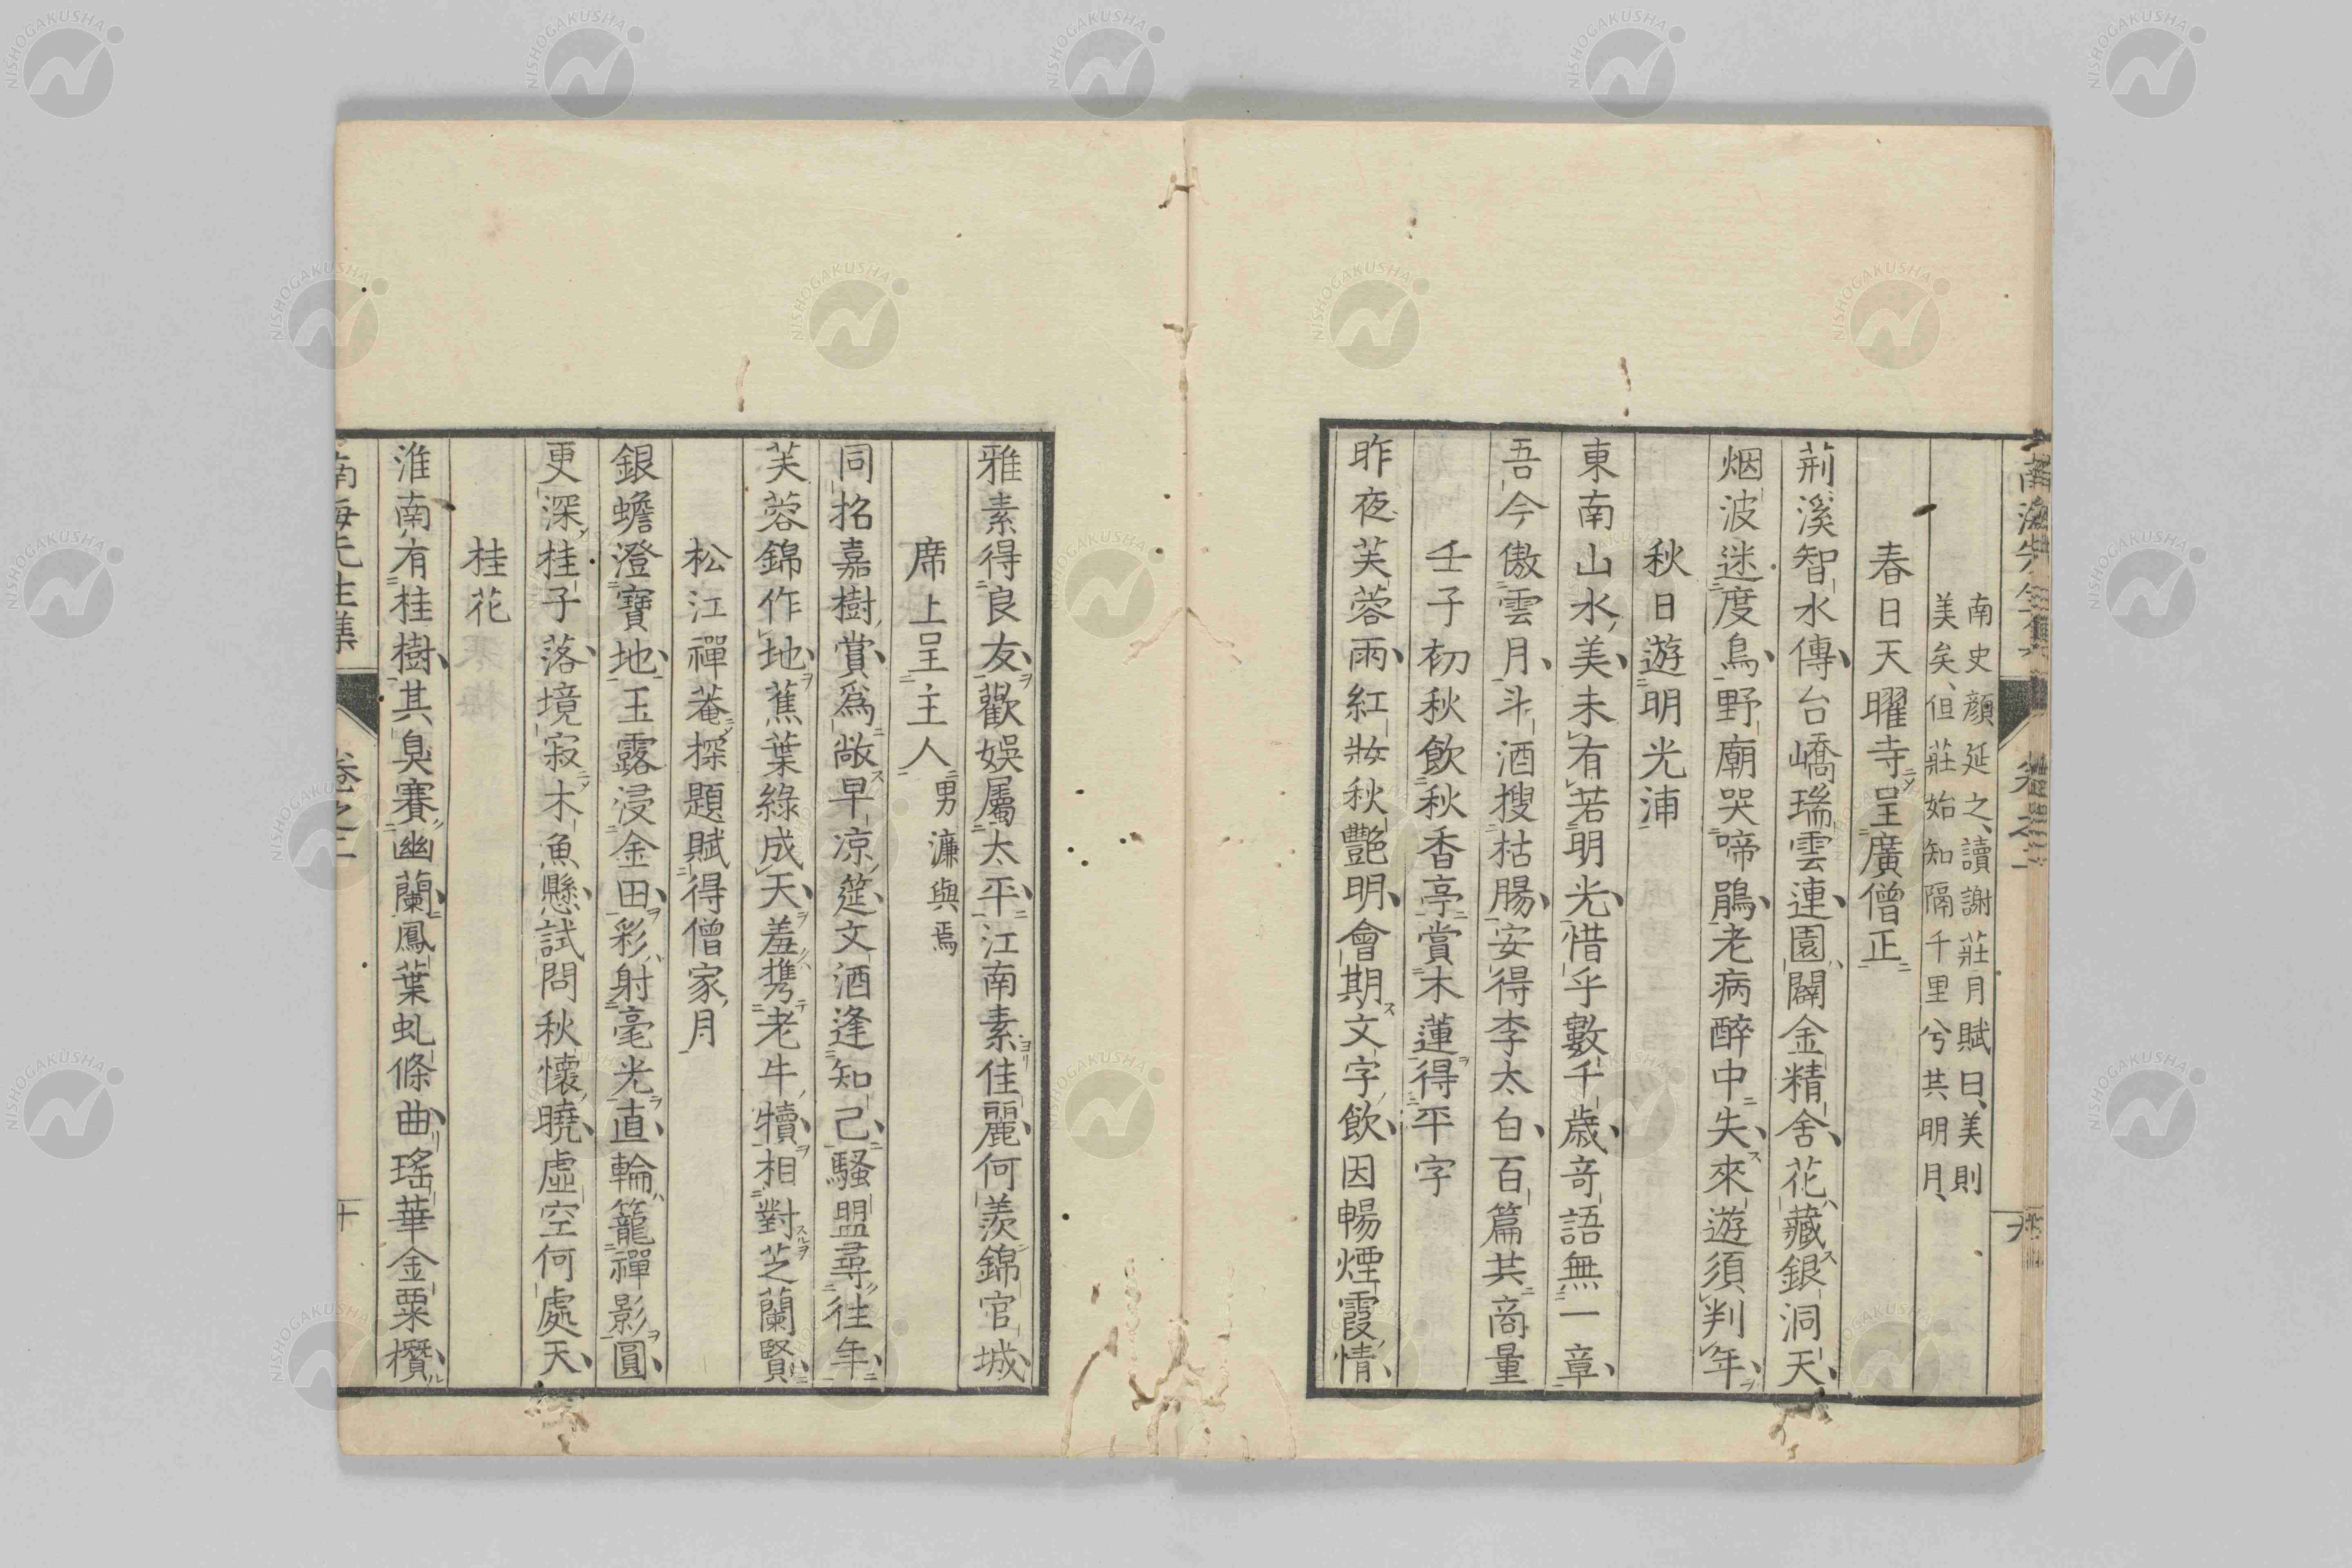 南史顔延之讀謝莊月賦曰美則
美矣但莊始知隔千里兮共明月
春日天曜寺呈廣僧正
荊溪智水傳台嶠瑞雲連園闢金精舍花藏銀洞天
烟波迷度鳥野廟哭啼鵑老病醉中失來遊須判年
秋日遊明光浦
東南山水美未有若明光惜乎數千歲竒語無一章
吾今傲雲月斗酒搜枯腸安得李太白百篇共商量
壬子初秋飲秋香亭賞木蓮得平字
昨夜芙蓉雨紅妝秋艷明會期文字飲因暢煙霞情
雅素得良友歡娛屬太平江南素佳麗何羨錦官城
席上呈主人男濂與焉
同招嘉樹賞爲敞早凉筵文酒逢知己騷盟尋往年
芙蓉錦作地蕉葉綠成天羞携老牛犢相對芝蘭賢
松江禪菴探題賦得僧家月
銀蟾澄寶地玉露浸金田彩射毫光直輪籠禪影圓
更深桂子落境寂木魚懸試問秋懷曉虛空何處天
桂花
淮南有桂樹其臭賽幽蘭鳳葉虬條曲瑤華金粟欑
南海先生集
卷之二
十
NISHOGAKUSHA